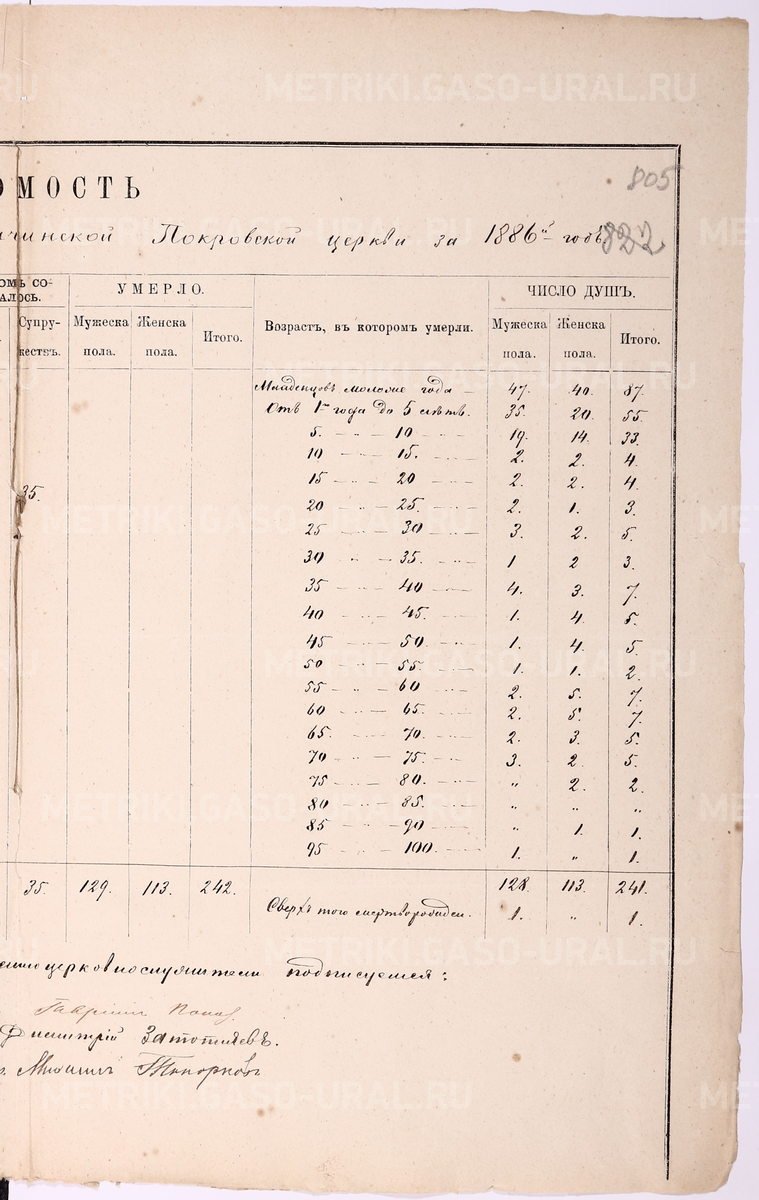 METRIKI.GASO-URAL.RU
805
ОМОСТЬ
чинской Покровской церкви за 1886й годъ 822
ОМЪ СО-
АЛОСЬ. УМЕРЛО. Возрастъ, въ которомъ умерли. ЧИСЛО ДУШЪ.
Супру-
жествъ. Мужеска пола. Женска пола. Итого. Мужеска пола. Женска пола. Итого.
Младенцовъ моложе года — 47. 40. 87.
Отъ 1го года до 5 лѣтъ. 35. 20. 55.
5. — „ — 10 — „ — 19. 14. 33.
10 — „ — 15. — „ — 2. 2. 4.
15 — „ — 20 — „ — 2. 2. 4.
35.
20 — „ — 25. — „ — 2. 1. 3.
25 — „ — 30 — „ — 3. 2. 5.
30 — „ — 35. — „ — 1 2 3.
35 — „ — 40 — „ — 4. 3. 7.
40 — „ — 45. — „ — 1. 4. 5.
45 — „ — 50. — „ — 1. 4. 5.
50 — „ — 55. — „ — 1. 1. 2.
55 — „ — 60 — „ — 2. 5. 7.
60 — „ — 65. — „ — 2. 5. 7.
65. — „ — 70. — „ — 2. 3. 5.
70 — „ — 75. — „ — 3. 2. 5.
75 — „ — 80. — „ — „ 2. 2.
80 — „ — 85. — „ — „ „ „
85 — „ — 90 — „ — „ 1. 1.
95 — „ — 100. — „ — 1. „ 1.
35. 129. 113. 242. 128. 113. 241.
Сверхъ того 1. „ 1.
церковнослужители подписуемся:
Гавриилъ Попов
Димитрій
Михаилъ Топорковъ